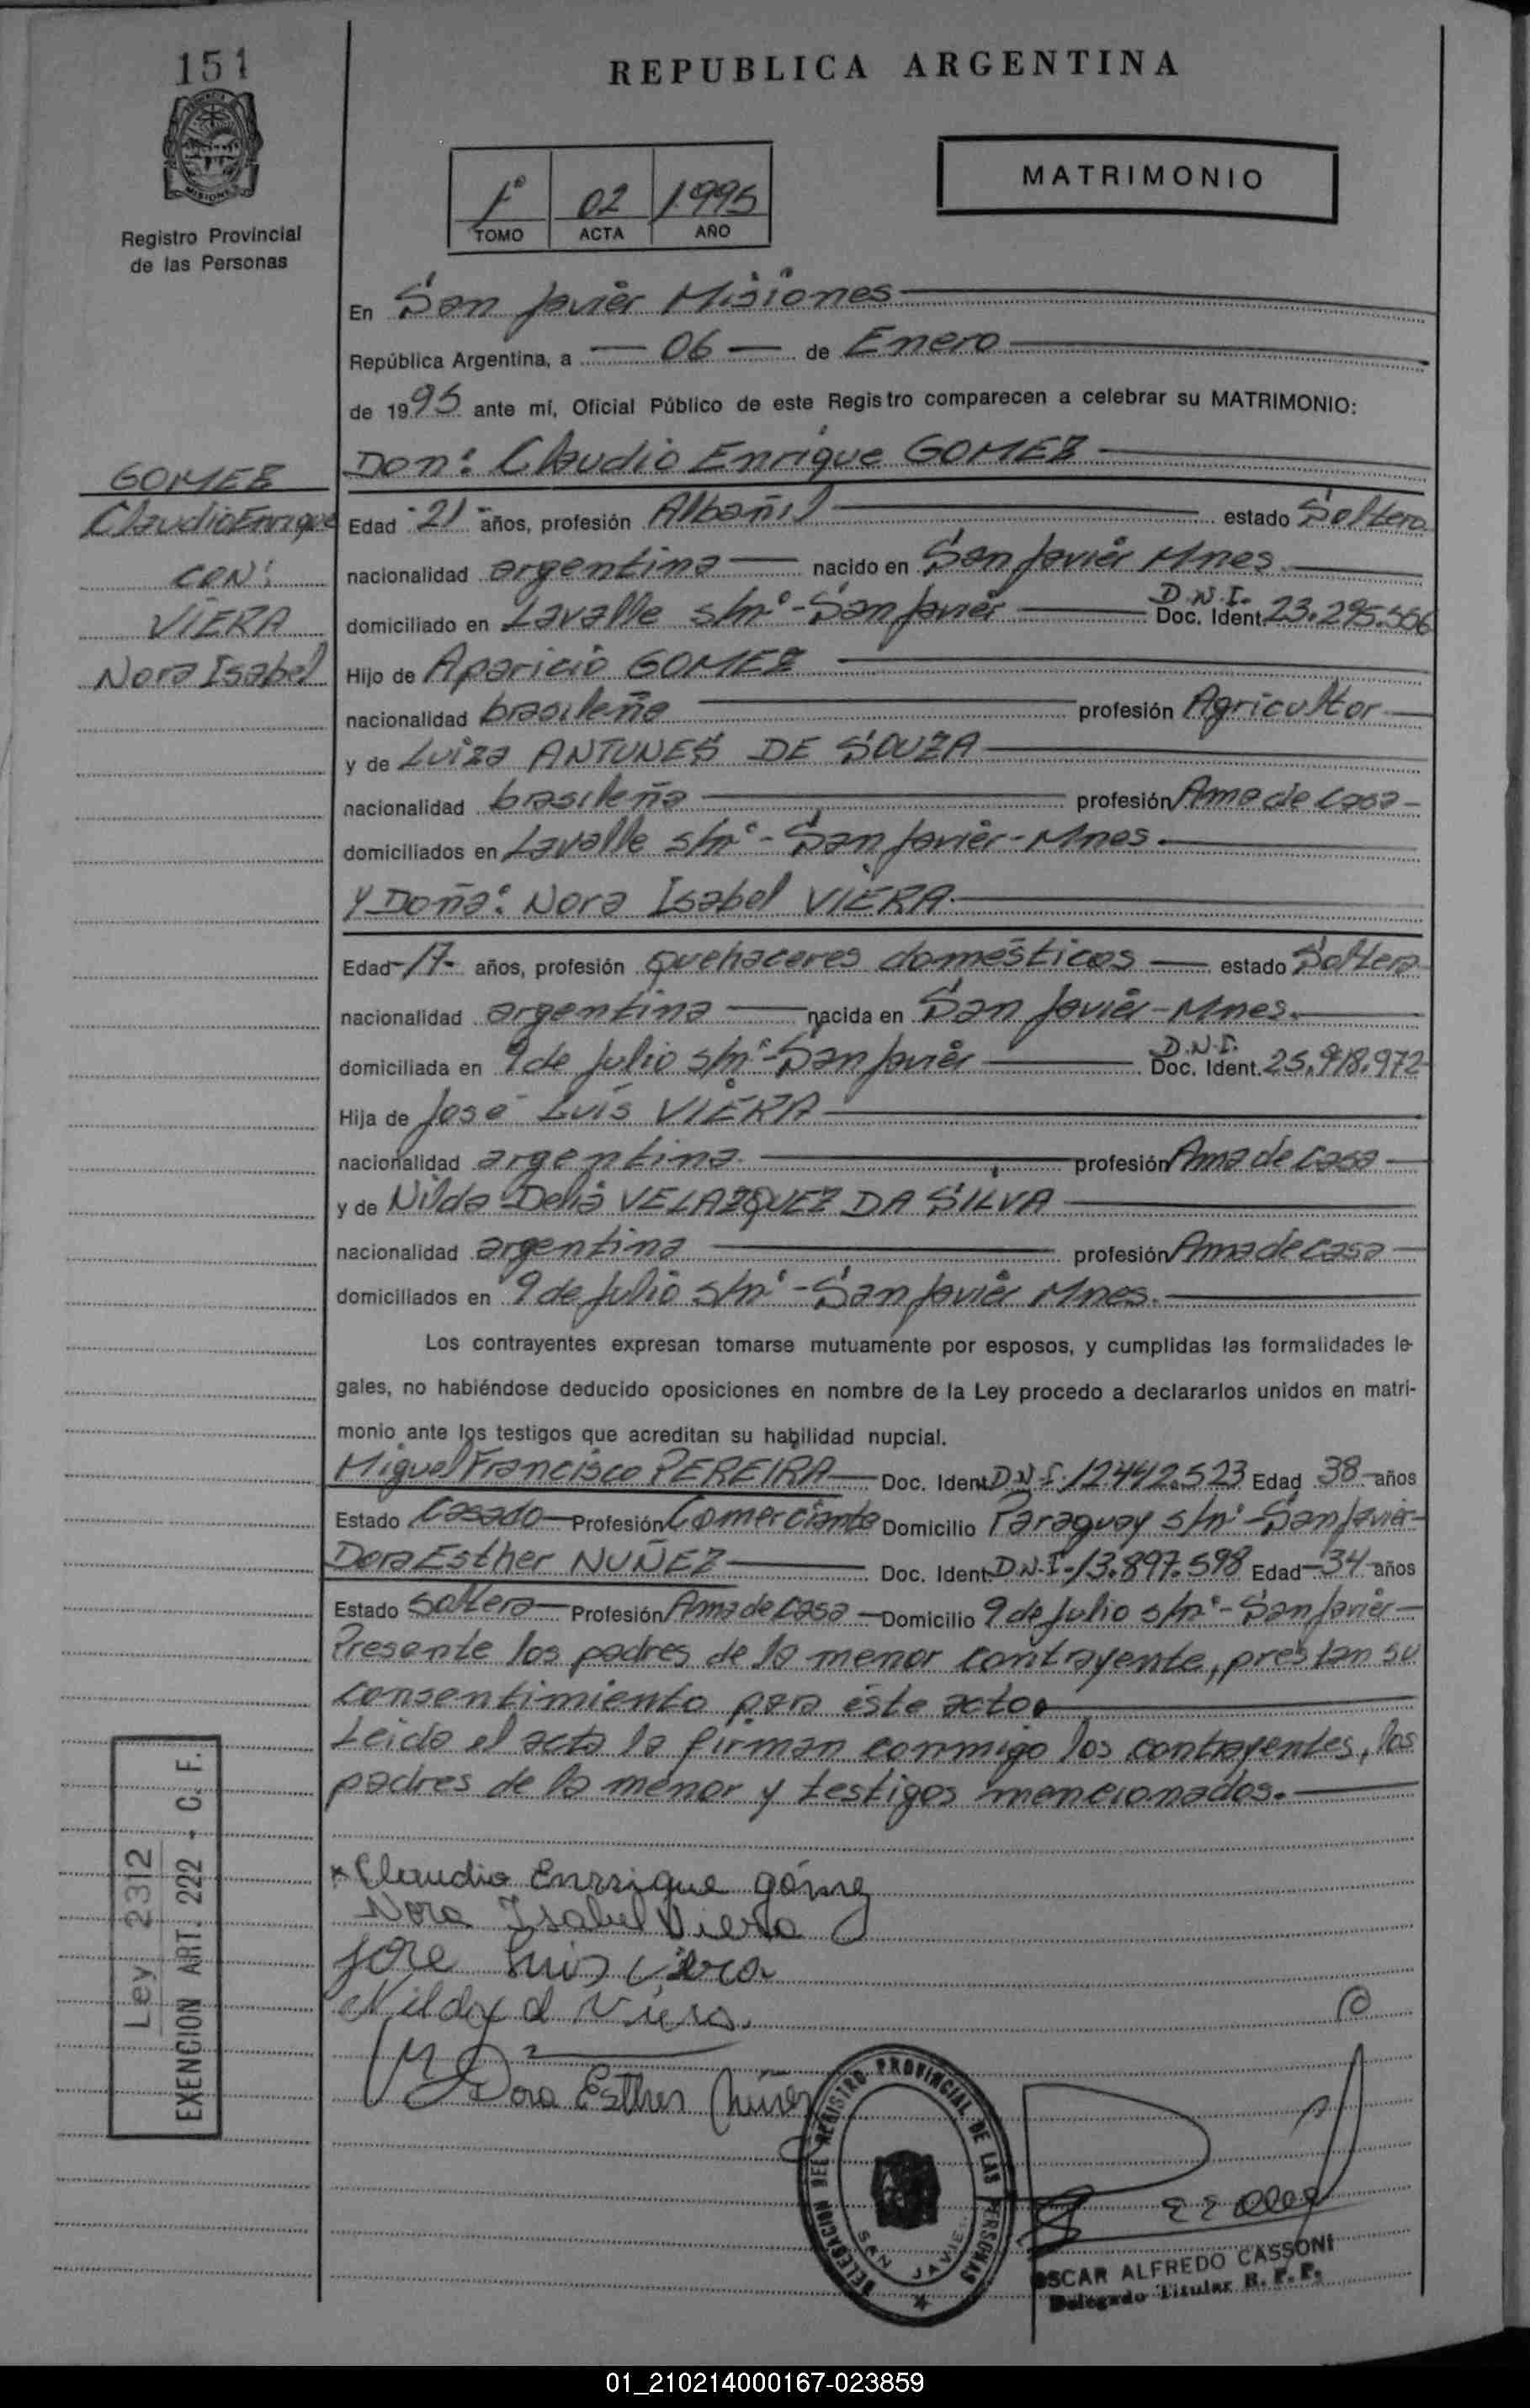 151
REPUBLICA ARGENTINA
MISIONES
Registro Provincial
de las Personas
1º 02 1995
TOMO ACTA AÑO
MATRIMONIO
En San Javier Misiones
República Argentina, a 06 de Enero
de 1995 ante mí, Oficial Público de este Registro comparecen a celebrar su MATRIMONIO:
GOMEZ
Claudio Enrique
CON:
VIERA
Nora Isabel
Don: Claudio Enrique GOMEZ
Edad 21 años, profesión Albañil estado Soltero
nacionalidad argentina nacido en San Javier Mnes
domiciliado en Lavalle s/nº - San Javier D.N.I. Doc. Ident. 23.295.556
Hijo de Aparicio GOMEZ
nacionalidad brasileña profesión Agricultor
y de Luiza ANTUNES DE SOUZA
nacionalidad brasileña profesión Ama de casa
domiciliados en Lavalle s/nº - San Javier - Mnes.
Y Doña: Nora Isabel VIERA
Edad 17 años, profesión quehaceres domésticos estado Soltera
nacionalidad argentina nacida en San Javier - Mnes.
domiciliada en 9 de Julio s/nº - San Javier D.N.I. Doc. Ident. 25.918.972
Hija de José Luis VIERA
nacionalidad argentina profesión Ama de casa
y de Nilda Delia VELAZQUEZ DA SILVA
nacionalidad argentina profesión Ama de casa
domiciliados en 9 de Julio s/nº - San Javier Mnes.
Los contrayentes expresan tomarse mutuamente por esposos, y cumplidas las formalidades le-
gales, no habiéndose deducido oposiciones en nombre de la Ley procedo a declararlos unidos en matri-
monio ante los testigos que acreditan su habilidad nupcial.
Miguel Francisco PEREIRA Doc. Ident. D.N.I. 12.442.523 Edad 38 años
Estado Casado Profesión Comerciante Domicilio Paraguay s/nº - San Javier
Dora Esther NUÑEZ Doc. Ident. D.N.I. 13.897.598 Edad 34 años
Estado Soltera Profesión Ama de casa Domicilio 9 de Julio s/nº - San Javier
Presente los padres de la menor contrayente, prestan su
consentimiento para éste acto.
Leida el acta la firman conmigo los contrayentes, los
padres de la menor y testigos mencionados.
Ley 2312
EXENCION ART. 222 - C. F.
x Claudio Enrrique gómez
Nora Isabel Viera
Jose Luis Viera
Nilda d Viera.
Dora Esther Núñez
DELEGACION DEL REGISTRO PROVINCIAL DE LAS PERSONAS
SAN JAVIER
OSCAR ALFREDO CASSONI
Delegado Titular R. P. P.
01_210214000167-023859